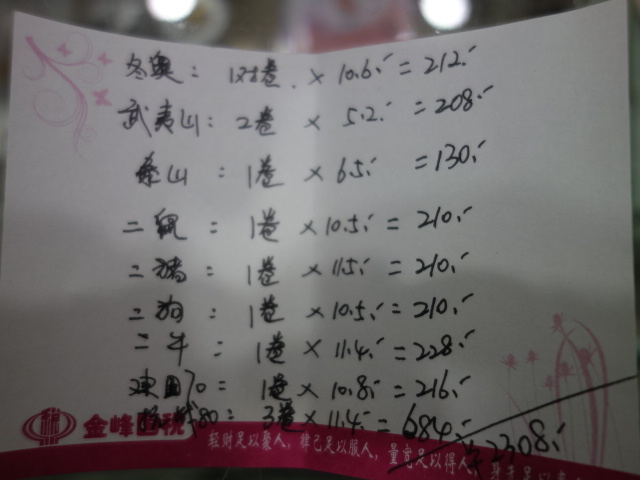 冬奥: 1对卷. × 10.6/ = 212./
武夷山: 2卷 × 5.2/ = 208./
泰山: 1卷 × 6.5/ =130./
二鼠: 1卷 × 10.5/ = 210./
二猪: 1卷 × 11.5/ = 210./
二狗: 1卷 × 10.5/ = 210./
二牛: 1卷 × 11.4/ = 228./
建国70: 1卷 × 10.8/ = 216./
80: 3卷 × 11.4/ = 684./
2308./
金峰国税
轻财足以聚人, 律己足以服人, 量宽足以得人,